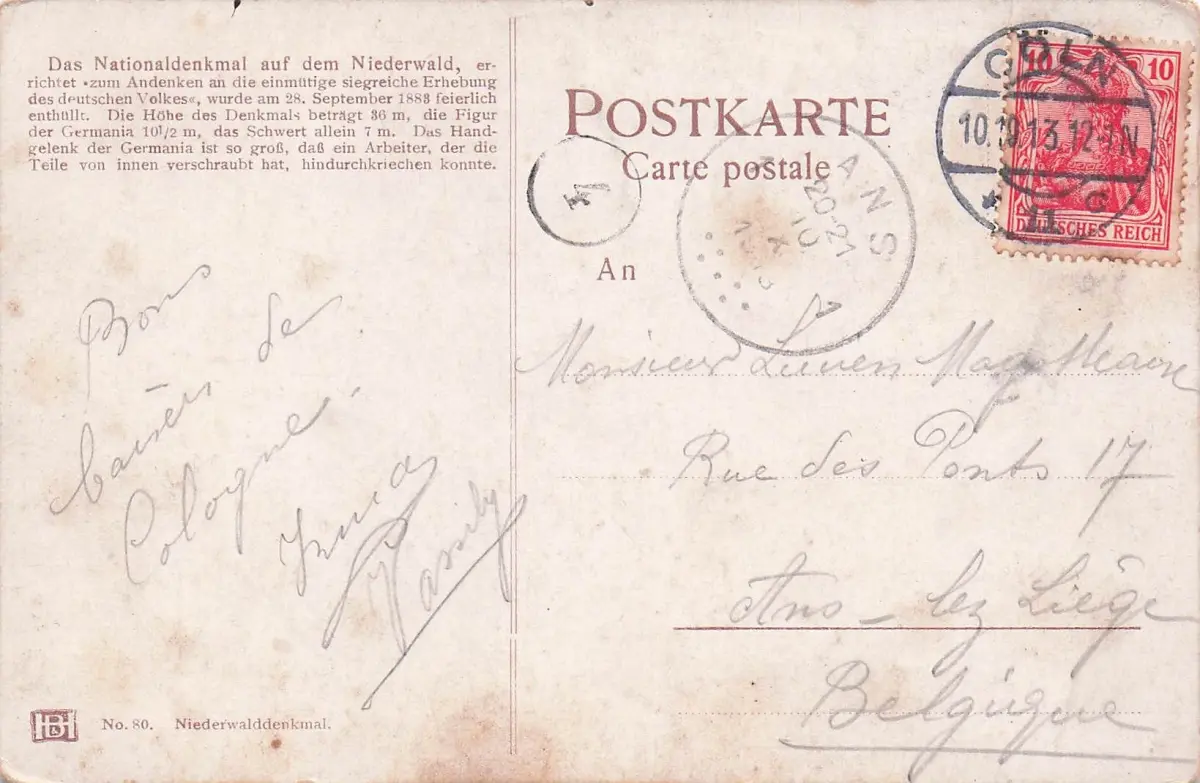 Das Nationaldenkmal auf dem Niederwald, er-
richtet »zum Andenken an die einmütige siegreiche Erhebung
des deutschen Volkes«, wurde am 28. September 1883 feierlich
enthüllt. Die Höhe des Denkmals beträgt 36 m, die Figur
der Germania 10 1/2 m, das Schwert allein 7 m. Das Hand-
gelenk der Germania ist so groß, daß ein Arbeiter, der die
Teile von innen verschraubt hat, hindurchkriechen konnte.
POSTKARTE
Carte postale
An
CÖLN
10.10.13.12-1N
* 11 G
10 10
DEUTSCHES REICH
4
ANS
12-20
10
X
Bons
baisers de
Cologne.
Monsieur
Rue des Ponts 17
Ans - lez Liége
Belgique
HB&
No. 80. Niederwalddenkmal.